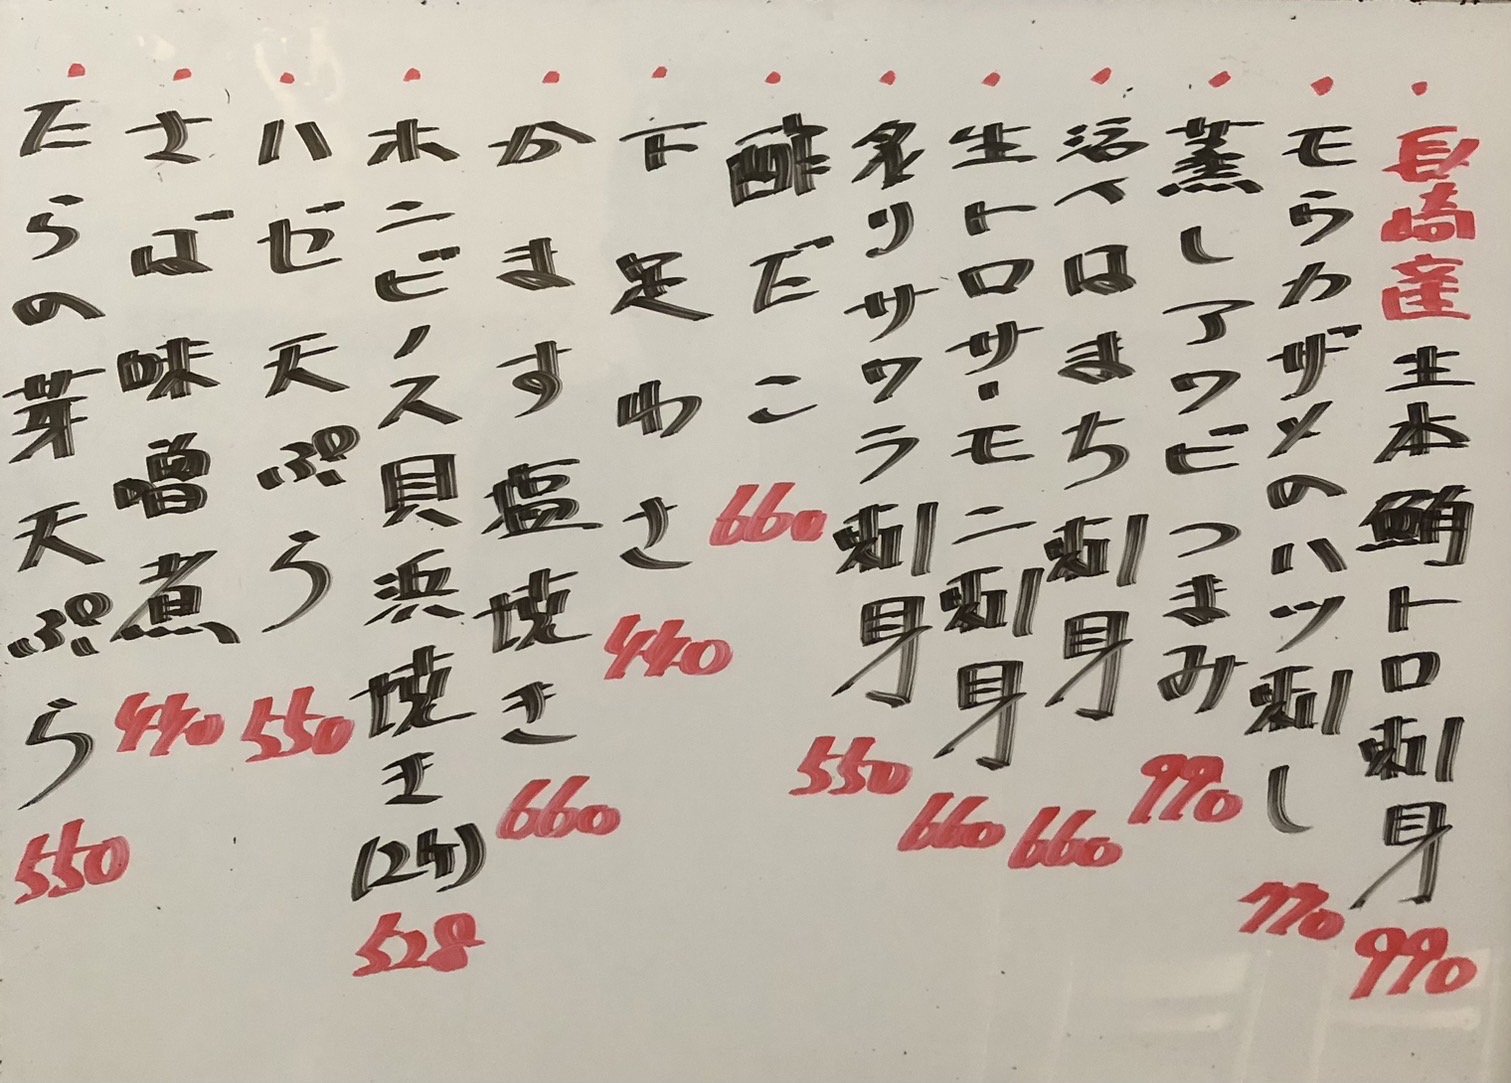 ・長崎産生本鮪トロ刺身 990
・モウカザメのハツ刺し 770
・蒸しアワビつまみ 990
・活〆はまち刺身 660
・生トロサーモン刺身 660
・炙りサワラ刺身 550
・酢だこ 660
・下足わさ 440
・かます塩焼き 660
・ホンビノス貝浜焼き(2ケ) 528
・ハゼ天ぷら 550
・さば味噌煮 440
・たらの芽天ぷら 550